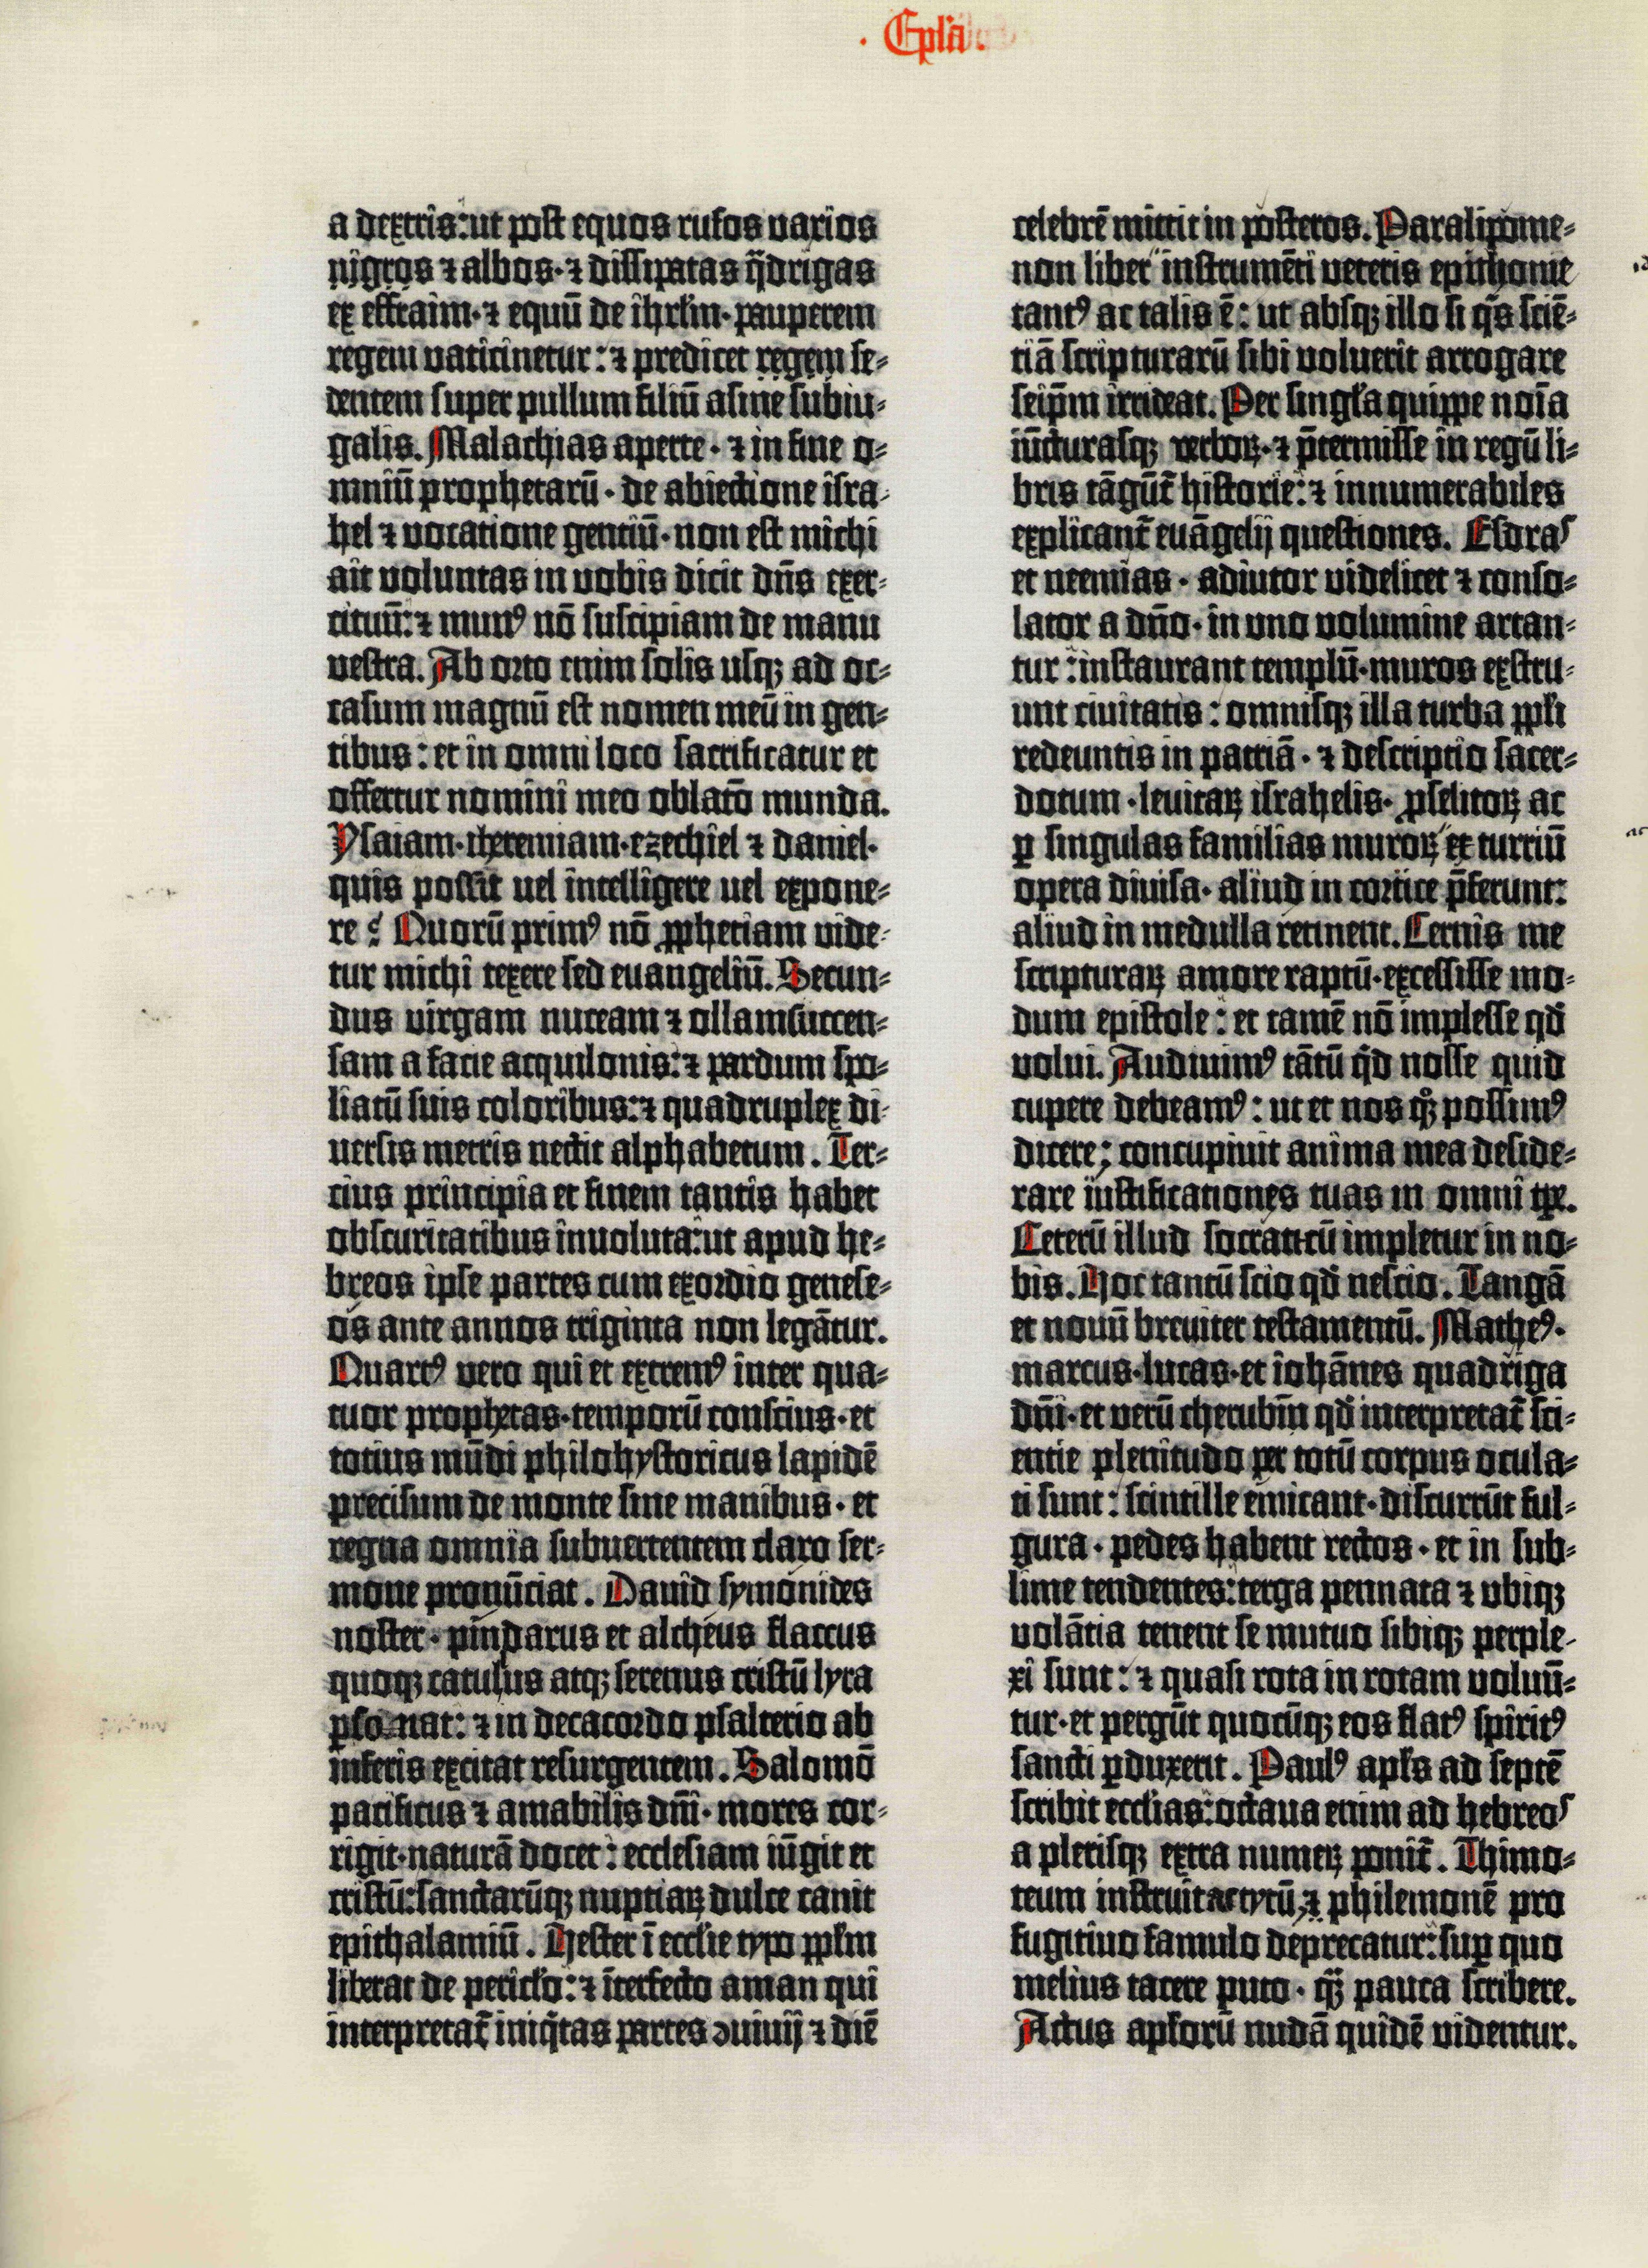 . Epl'a .
a dextris: ut post equos rufos varios
nigros ⁊ albos· ⁊ dissipatas q̈drigas
ex effraim· ⁊ equū de ihrl'm· pauperem
regem vaticinetur: ⁊ predicet regem se-
dentem super pullum filiū asine subiu-
galis. Malachias aperte· ⁊ in fine o-
mniū prophetarū· de abiectione isra-
hel ⁊ vocatione gentiū· non est michi
ait voluntas in vobis dicit dn̄s exer-
cituū: ⁊ munꝰ nō suscipiam de manu
vestra. Ab orto enim solis usqꝫ ad oc-
casum magnū est nomen meū in gen-
tibus: et in omni loco sacrificatur et
offertur nomini meo oblatō munda.
Ysaiam· iheremiam· ezechiel ⁊ daniel·
quis possit vel intelligere vel expone-
re? Quorū primꝰ nō ꝓphetiam vide-
tur michi texere sed euangeliū. Secun-
dus virgam nuceam ⁊ ollam succen-
sam a facie acquilonis: ⁊ pardum spo-
liatū suis coloribus: ⁊ quadruplex di-
versis metris nectit alphabetum. Ter-
cius principia et finem tantis habet
obscuritatibus involuta: ut apud he-
breos ipse partes cum exordio genese-
os ante annos triginta non legātur.
Quartꝰ vero qui et extremꝰ inter qua-
tuor prophetas· temporū conscius· et
totius mūdi philohystoricus lapidē
precisum de monte sine manibus· et
regna omnia subvertentem claro ser-
mone pronūciat. David symonides
noster· pindarus et alcheus flaccus
quoqꝫ catulus atqꝫ serenus cristū lyra
ꝑsonat: ⁊ in decacordo psalterio ab
inferis excitat resurgentem. Salomō
pacificus ⁊ amabilis dn̄i· mores cor-
rigit· naturā docet: ecclesiam iūgit et
cristū: sanctarūqꝫ nuptiaꝝ dulce canit
epithalamiū. Hester ī eccl'ie typo ppl'm
liberat de pericl'o: ⁊ īterfecto aman qui
interpretat̄ iniq̇tas partes ꝯuiuij ⁊ diē
celebrē mittit in posteros. Paralipome-
non liber instrumēti veteris epithome
tantꝰ ac talis ē: ut absqꝫ illo si q̇s sciē-
tiā scripturarū sibi voluerit arrogare
seip̄m irrideat. Per singl'a quippe noīa
iūcturasqꝫ verboꝝ· ⁊ p̄termisse in regū li-
bris tāgūt̄ historie: ⁊ innumerabiles
explicant̄ euāgelij questiones. Esdras
et neemias· adiutor videlicet ⁊ conso-
lator a dn̄o· in uno volumine artan-
tur: instaurant templū· muros exstru-
unt civitatis: omnisqꝫ illa turba ppl'i
redeuntis in patriā· ⁊ descriptio sacer-
dotum· levitaꝝ israhelis· ꝓselitoꝝ ac
ꝑ singulas familias muroꝝ et turriū
opera divisa· aliud in cortice p̄ferunt:
aliud in medulla retinent. Cernis me
scripturaꝝ amore raptū· excessisse mo-
dum epistole: et tamē nō implesse qd̄
volui. Audivimꝰ tātū q̇d nosse quid
cupere debeamꝰ: ut et nos qꝫ possimꝰ
dicere; concupivit anima mea deside-
rare iustificationes tuas in omni tꝑe.
Ceterū illud socraticū impletur in no-
bis. Hoc tantū scio qd̄ nescio. Tangā
et novū breviter testamentū. Matheꝰ·
marcus· lucas· et iohānes quadriga
dn̄i· et verū cherubīn qd̄ interpretat̄ sci-
entie plenitudo per totū corpus ocula-
ti sunt: scintille emicant· discurrūt ful-
gura· pedes habent rectos· et in sub-
lime tendentes: terga pennata ⁊ ubiqꝫ
volātia tenent se mutuo sibiqꝫ perple-
xi sunt: ⁊ quasi rota in rotam voluū-
tur· et pergūt quocūqꝫ eos flatꝰ spiritꝰ
sancti ꝑduxerit. Paulꝰ apl's ad septē
scribit eccl'ias: octava enim ad hebreos
a plerisqꝫ extra numeꝝ ponit̄. Thimo-
teum instruit ac tytū, ⁊ philemonē pro
fugitivo famulo deprecatur: suꝑ quo
melius tacere puto· qꝫ̄ pauca scribere.
Actus apl'orū nudā quidē videntur.